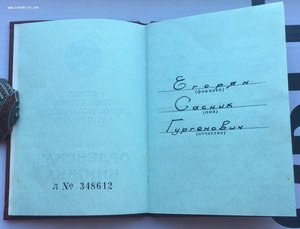 Егорян
(фамилия)
Сасник
(имя)
Гургенович
(отчество)
ОРДЕНСКАЯ
КНИЖКА
Л № 348612